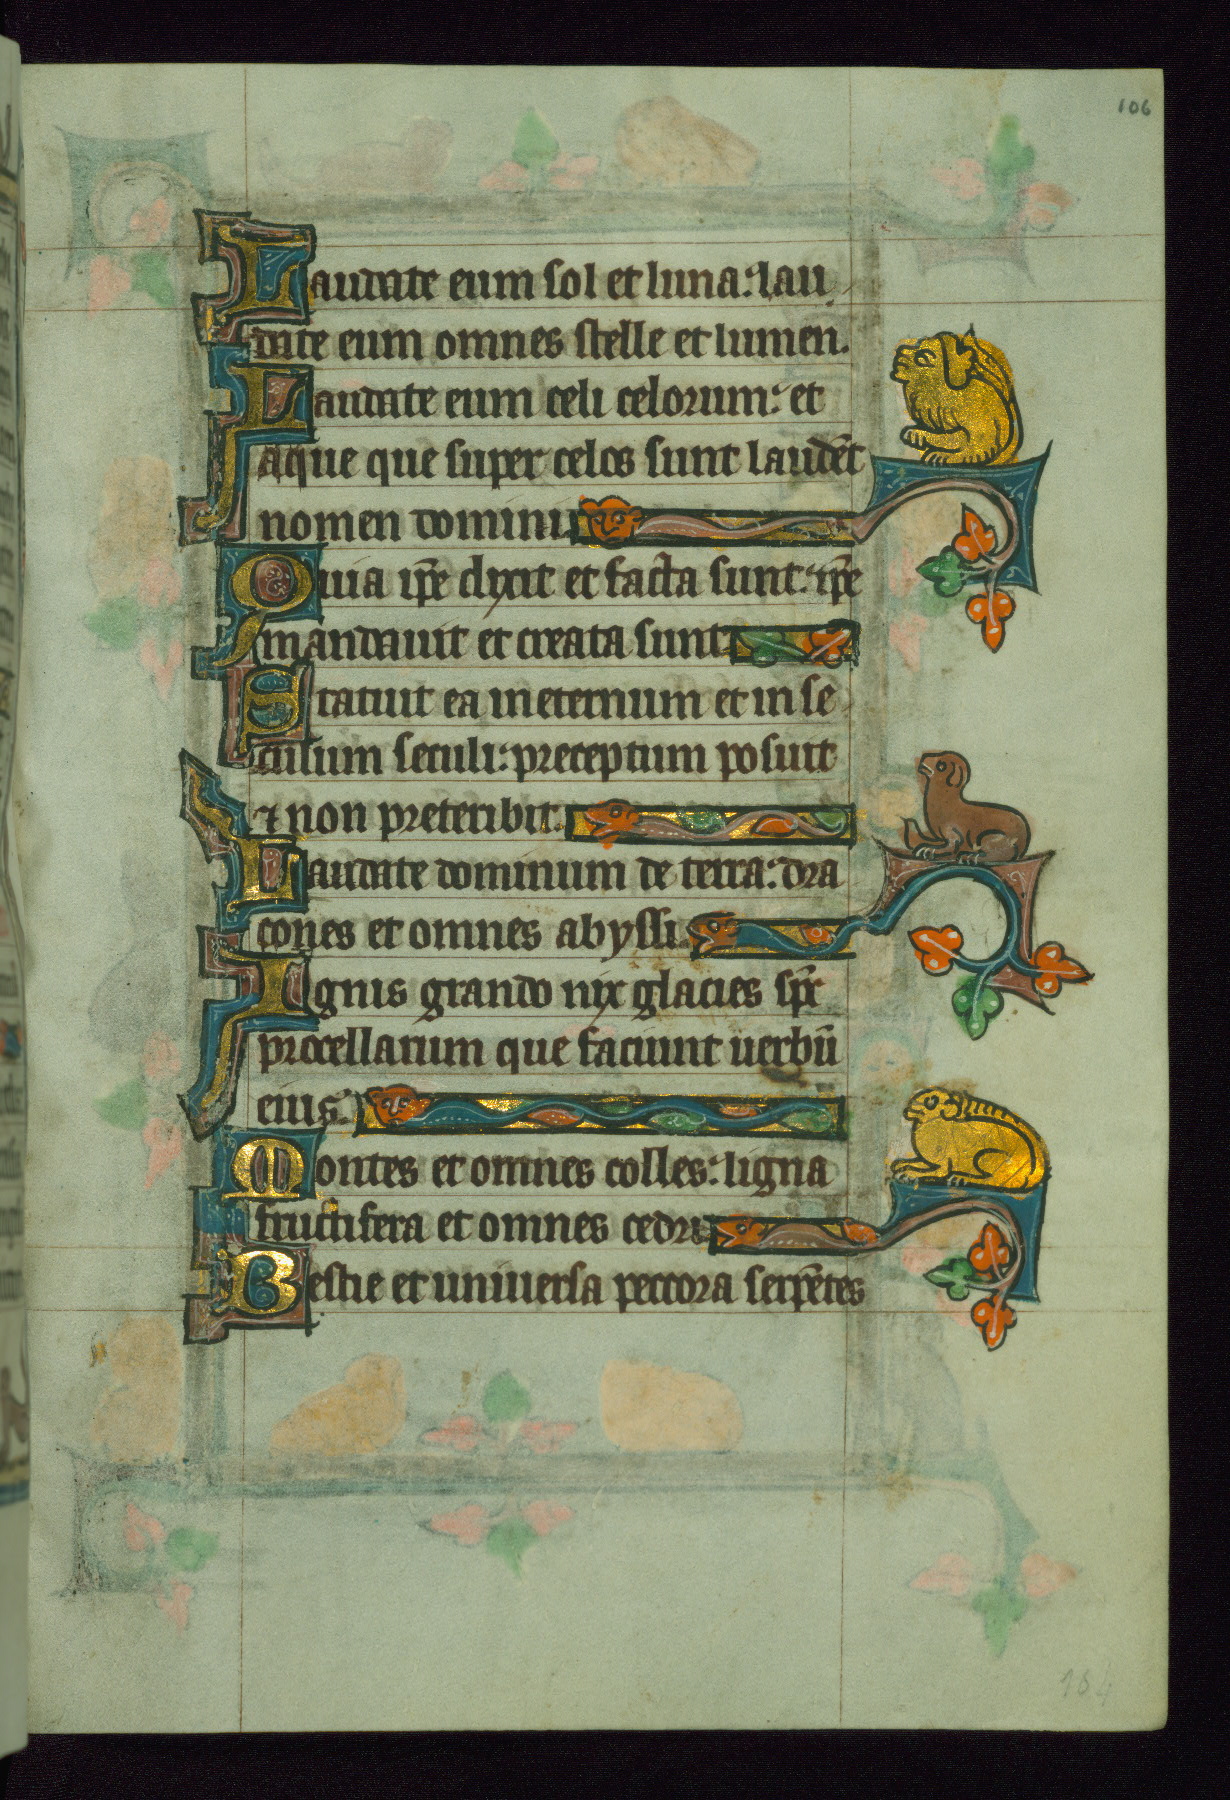 106
Laudate eum sol et luna: lau
date eum omnes stelle et lumen.
Laudate eum celi celorum: et
aque que super celos sunt laudēt
nomen domini
Quia ip̄e dixit et facta sunt: ip̄e
mandauit et creata sunt
Statuit ea in eternum et in se
culum seculi: preceptum posuit
⁊ non preteribit.
Laudate dominum de terra: dra
cones et omnes abyssi.
Ignis grando nix glacies sp̄r
procellarum que faciunt uerbū
eius.
Montes et omnes colles: ligna
fructifera et omnes cedri
Bestie et uniuersa peccora serpētes
184